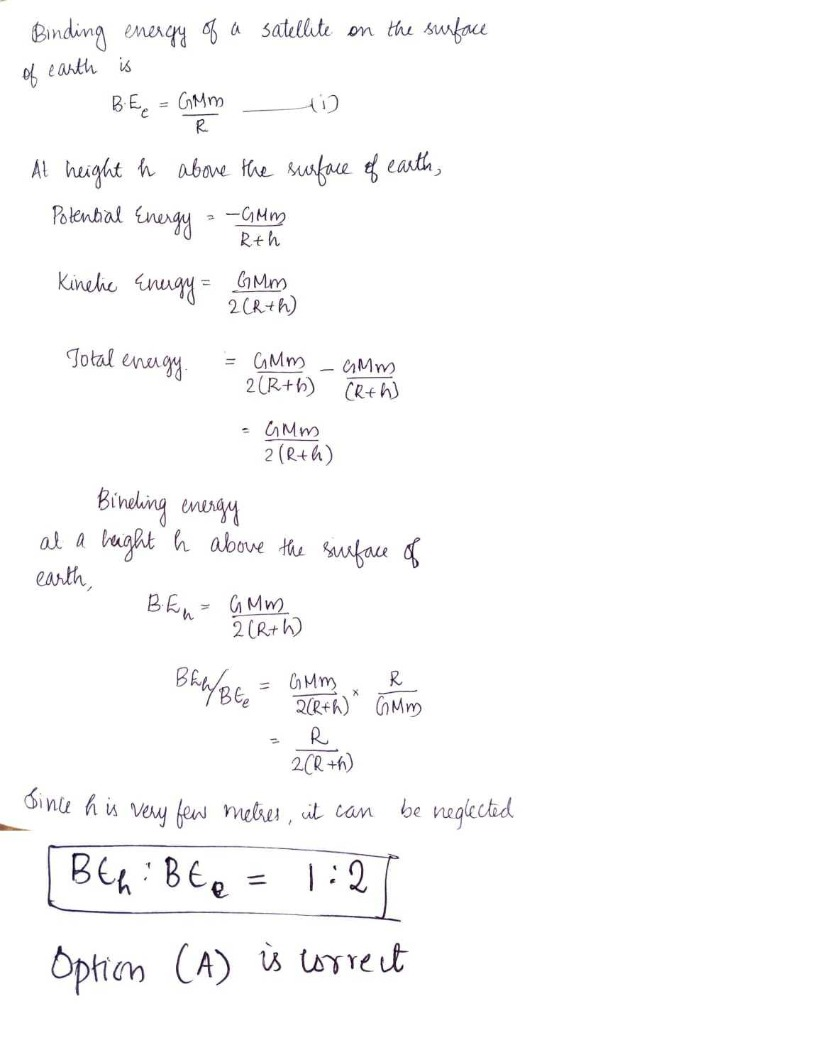 Binding energy of a satellite on the surface
of earth is
B.E_e = GMm/R ——(i)
At height h above the surface of earth,
Potential Energy = -GMm/R+h
Kinetic Energy = GMm/2(R+h)
Total energy. = GMm/2(R+h) - GMm/(R+h)
= GMm/2(R+h)
Binding energy
at a height h above the surface of
earth,
B.E_h = GMm/2(R+h)
BE_h/BE_e = GMm/2(R+h) × R/GMm
= R/2(R+h)
Since h is very few metres, it can be neglected
BE_h : BE_e = 1:2
Option (A) is correct